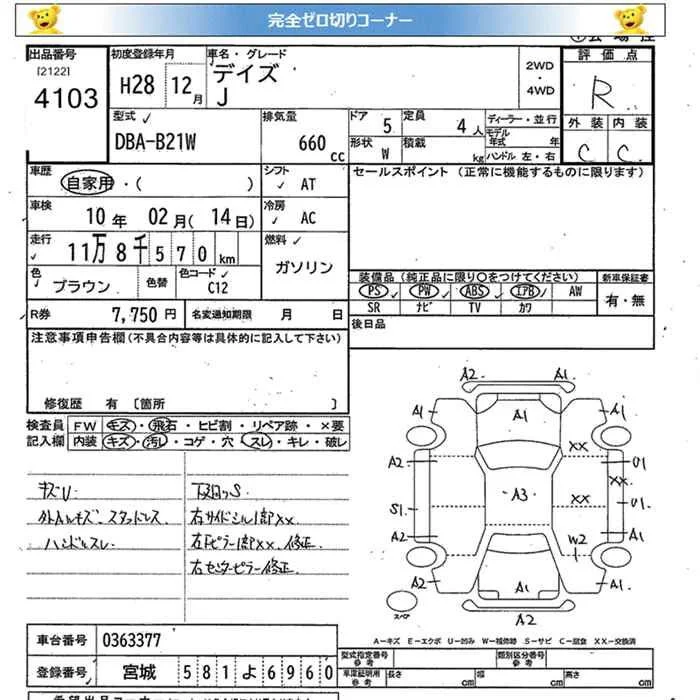 完全ゼロ切りコーナー
出品番号 初度登録年月 車名・グレード 評価点
[2122] デイズ 2WD
4103 H28 12月 J ・ R
4WD
型式 排気量 ドア 5 定員 4人 ディーラー・並行 外装 内装
DBA-B21W 660cc 形状 W 積載 kg モデル年式 年 C C
ハンドル 左・右
車歴 自家用・( ) シフト AT セールスポイント (正常に機能するものに限ります)
車検 10年 02月(14日) 冷房 AC
走行 11万8千570km 燃料 ガソリン
色 ブラウン 色替 色コード C12 装備品(純正品に限り○をつけてください) 新車保証書
PS PW ABS エアB AW 有・無
SR ナビ TV カワ
R券 7,750円 名変通知期限 月 日 後日品
注意事項申告欄(不具合内容等は具体的に記入して下さい)
修復歴 有 [箇所 ]
検査員 FW キズ・飛石・ヒビ割・リペア跡・×要
記入欄 内装 キズ・汚レ・コゲ・穴・スレ・キレ・破レ
キズU 下廻りS
外Aルキズ スタッドレス 右サイドシル1部XX
ハンドルスレ 右Fピラー1部XX、修正
右センターピラー修正
A2 A1
A1 A1 A1
XX
A2 U1
XX
A3 XX
S1 U1
A2 W2 A1
A2 A1 A1
スペア A2
A−キズ E−エクボ U−凹み W−補修跡 S−サビ C−腐食 XX−交換済
車台番号 0363377
型式指定番号 参考 類別区分番号 参考
登録番号 宮城 581よ6960
車庫証明用 参考 長さ cm 幅 cm 高さ cm